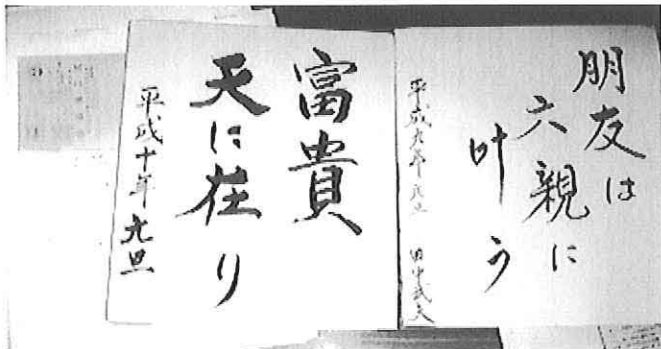 朋友は
六親に
叶う
平成九年元旦 田中武夫
富貴
天に在り
平成十年 元旦